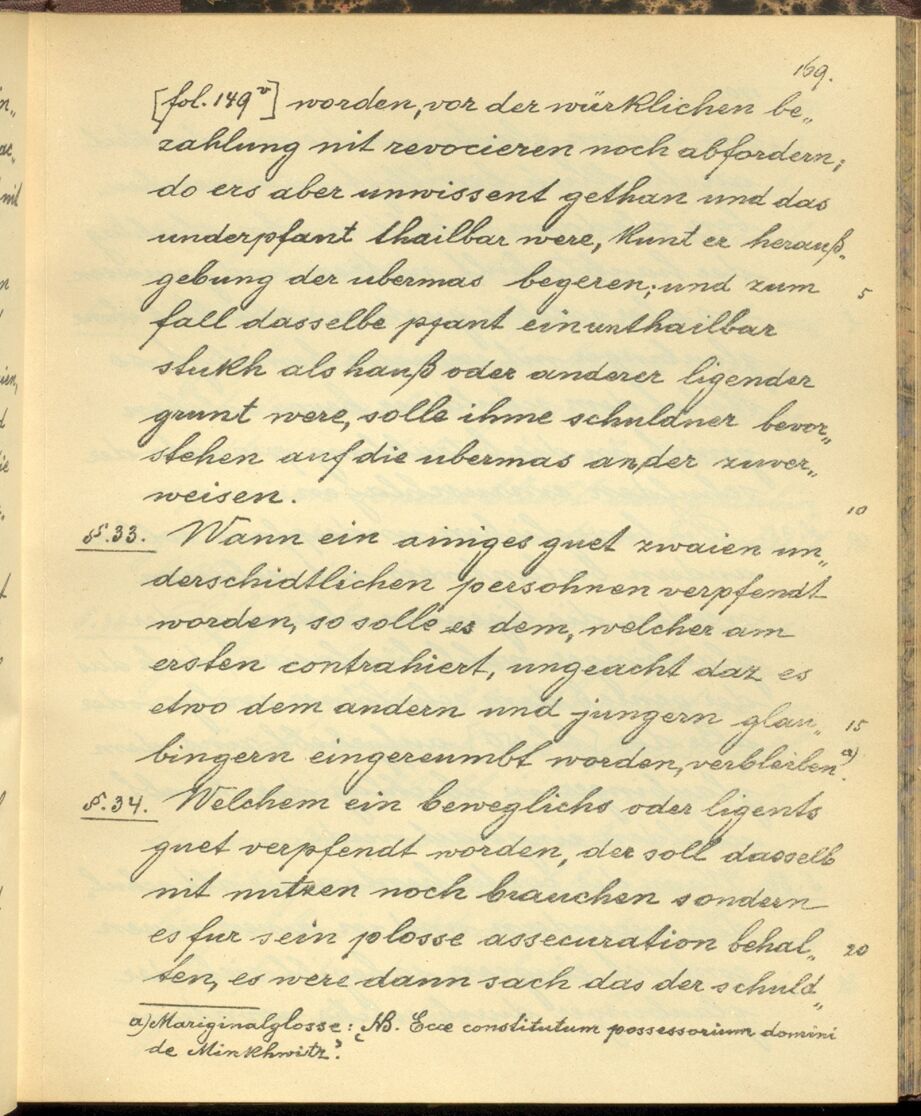 169.
[fol. 149v] worden, vor der würklichen be„
zahlung nit revocieren noch abfordern;
do ers aber unwissent gethan und das
underpfant thailbar were, kunt er herauß„
gebung der ubermas begeren; und zum
5
fall dasselbe pfant ein unthailbar
stukh als hauß oder anderer ligender
grunt were, solle ihme schuldner bevor„
stehen auf die ubermas ander zuver„
weisen.
10
§.33. Wann ein ainiges guet zwaien un„
derschidtlichen persohnen verpfendt
worden, so solle es dem, welcher am
ersten contrahiert, ungeacht daz es
etwo dem andern und jungern glau„
15
bingern eingereumbt worden, verbleiben a).
§.34. Welchem ein beweglichs oder ligents
guet verpfendt worden, der soll dasselb
nit nutzen noch brauchen sondern
es fur sein plosse assecuration behal„
20
ten, es were dann sach das der schuld„
a) Mariginalglosse: NB. Ecce constitutum possessorium domini
de Minkhwitz?